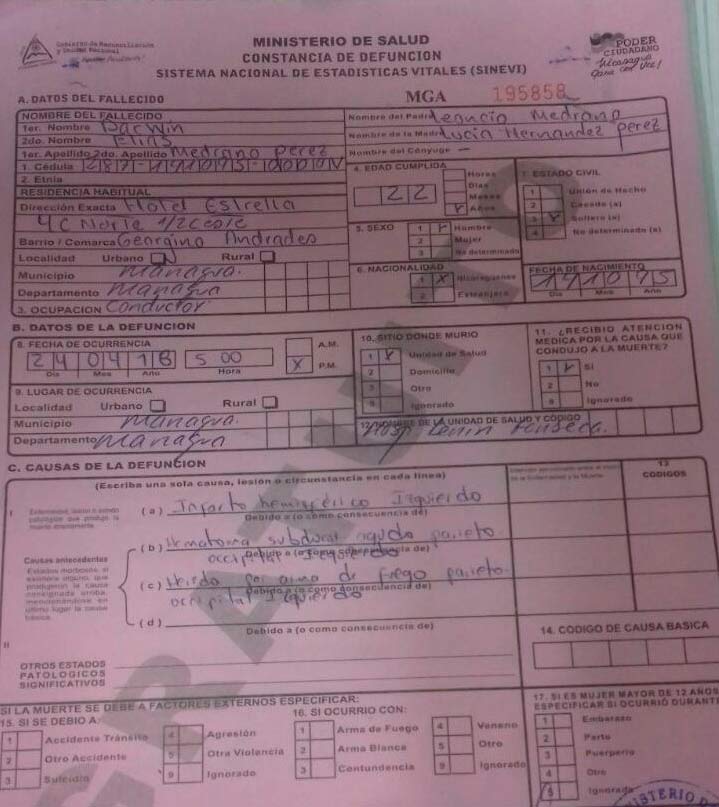 Gobierno de Reconciliación
y Unidad Nacional
MINISTERIO DE SALUD
CONSTANCIA DE DEFUNCION
SISTEMA NACIONAL DE ESTADISTICAS VITALES (SINEVI)
PODER
CIUDADANO
Nicaragua
Gana con Vos!
A. DATOS DEL FALLECIDO
MGA 195858
NOMBRE DEL FALLECIDO
1er. Nombre Darwin
2do. Nombre Elias
1er. Apellido 2do. Apellido Medrano perez
1. Cédula
2. Etnia
Nombre del Padre Medrano
Nombre de la Madre Lucia Hernandez perez
Nombre del Cónyuge —
RESIDENCIA HABITUAL
Dirección Exacta Hotel Estrella
4C Norte 1/2C este
Barrio / Comarca Georgino Andrades
Localidad Urbano Rural
Municipio Managua.
Departamento Managua
3. OCUPACION Conductor
4. EDAD CUMPLIDA
22
Horas
Días
Meses
Años
5. SEXO
1 Hombre
2 Mujer
3 No determinado
6. NACIONALIDAD
1 X Nicaragüense
2 Extranjera
7. ESTADO CIVIL
1 Unión de Hecho
2 Casado (a)
3 Soltero (a)
4 No determinado (a)
FECHA DE NACIMIENTO
141095
Dia Mes Año
B. DATOS DE LA DEFUNCION
8. FECHA DE OCURRENCIA
24 04 18 5 00
Dia Mes Año Hora
A.M.
X P.M.
9. LUGAR DE OCURRENCIA
Localidad Urbano Rural
Municipio Managua.
Departamento Managua
10. SITIO DONDE MURIO
1 Unidad de Salud
2 Domicilio
3 Otro
9 Ignorado
11. ¿RECIBIO ATENCION
MEDICA POR LA CAUSA QUE
CONDUJO A LA MUERTE?
1 Si
2 No
9 Ignorado
12. NOMBRE DE LA UNIDAD DE SALUD Y CODIGO
Hosp Lenin Fonseca.
C. CAUSAS DE LA DEFUNCION
(Escriba una sola causa, lesión o circunstancia en cada línea)
13
CODIGOS
I
Enfermedad, lesión o estado
patológico que produjo la
muerte directamente
(a) Infarto hemisférico Izquierdo
Debido a (o como consecuencia de)
(b) Hematoma subdural agudo parieto
occipital Izquierdo
Debido a (o como consecuencia de)
Causas antecedentes
Estados morbosos, si
existiera alguno, que
produjeron la causa
consignada arriba,
mencionándose en
último lugar la causa
básica.
(c) Herida por arma de fuego parieto
occipital Izquierdo
Debido a (o como consecuencia de)
(d)
Debido a (o como consecuencia de)
14. CODIGO DE CAUSA BASICA
II
OTROS ESTADOS
PATOLOGICOS
SIGNIFICATIVOS
SI LA MUERTE SE DEBE A FACTORES EXTERNOS ESPECIFICAR:
15. SI SE DEBIO A:
1 Accidente Tránsito
2 Otro Accidente
3 Suicidio
4 Agresión
5 Otra Violencia
9 Ignorado
16. SI OCURRIO CON:
1 Arma de Fuego
2 Arma Blanca
3 Contundencia
4 Veneno
5 Otro
9 Ignorado
17. SI ES MUJER MAYOR DE 12 AÑOS
ESPECIFICAR SI OCURRIÓ DURANTE
1 Embarazo
2 Parto
3 Puerperio
4 Otro
9 Ignorado
GRATUITO